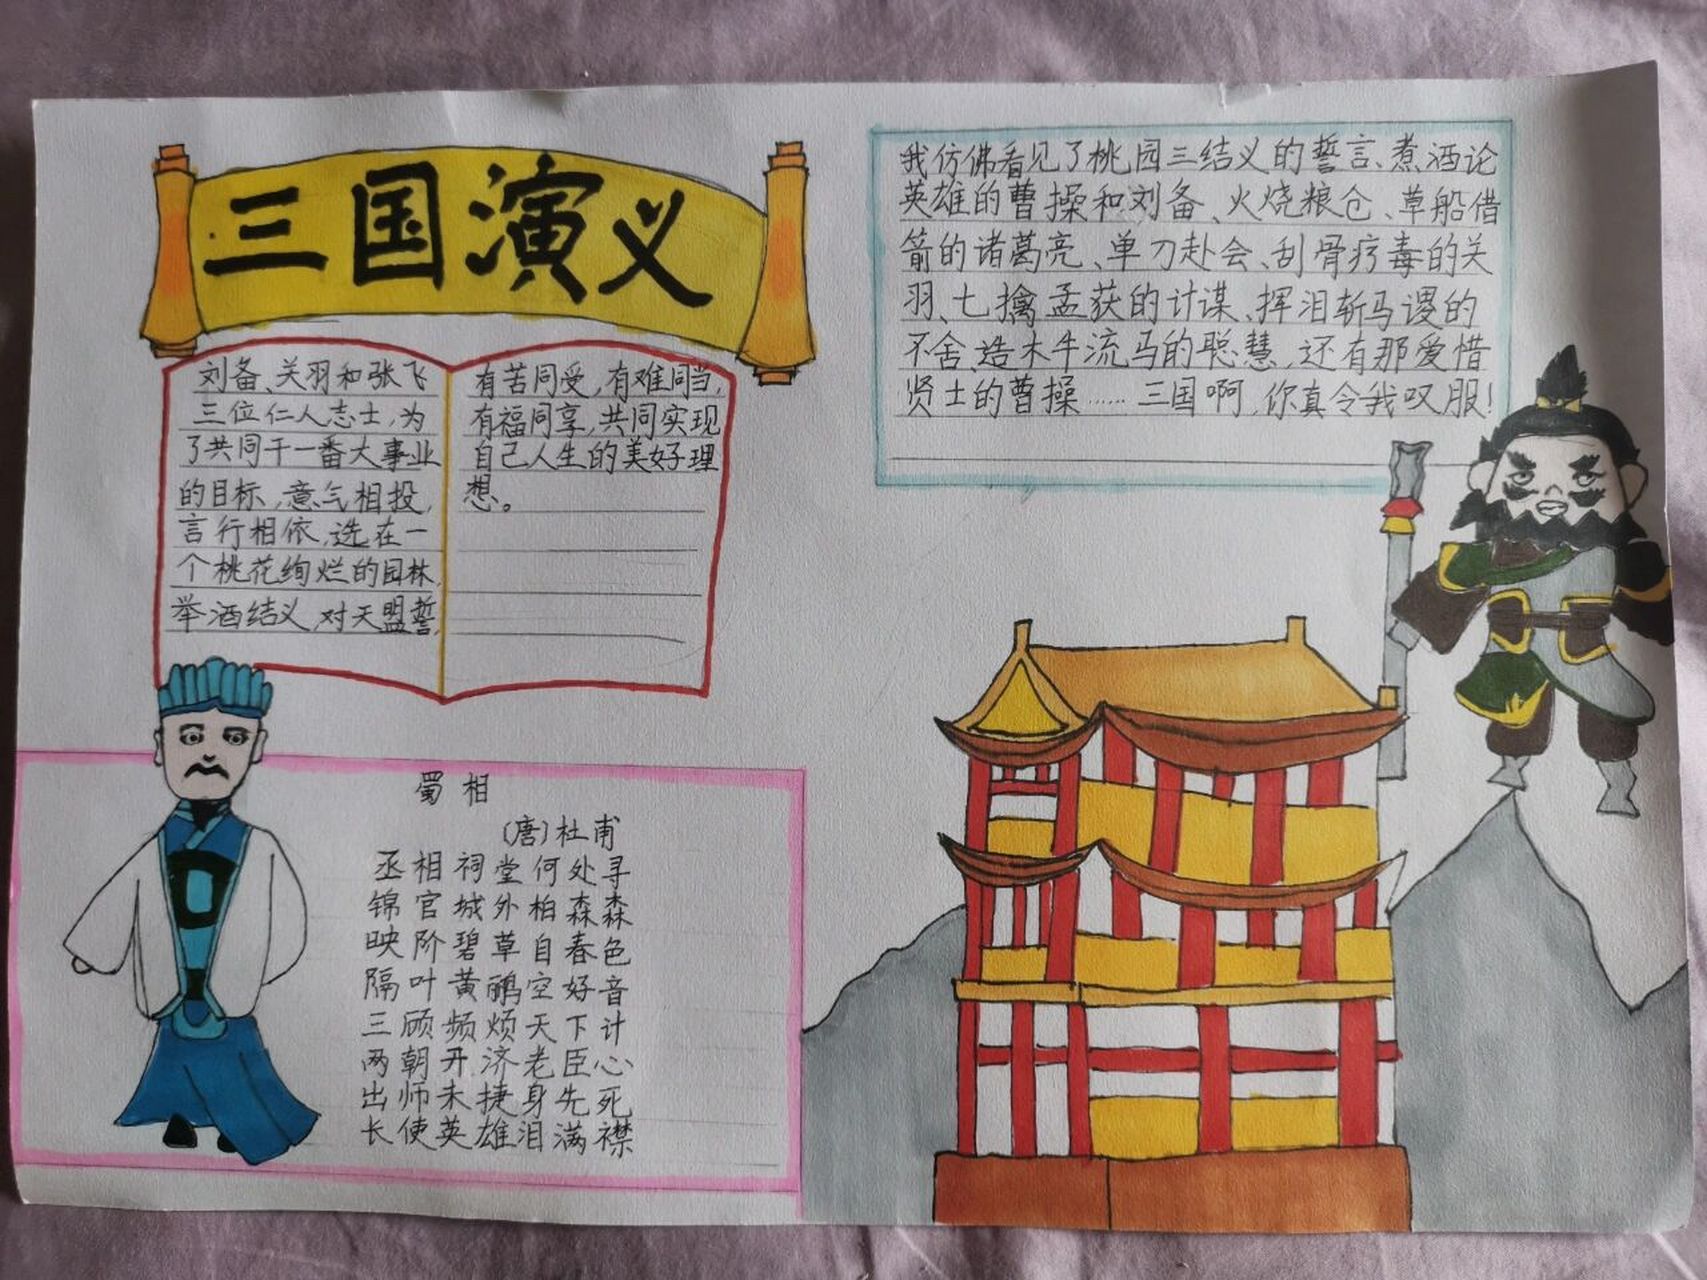 三国演义
刘备、关羽和张飞
三位仁人志士,为
了共同干一番大事业
的目标,意气相投,
言行相依,选在一
个桃花绚烂的园林,
举酒结义,对天盟誓,
有苦同受,有难同当,
有福同享,共同实现
自己人生的美好理
想。
我仿佛看见了桃园三结义的誓言、煮酒论
英雄的曹操和刘备、火烧粮仓、草船借
箭的诸葛亮、单刀赴会、刮骨疗毒的关
羽、七擒孟获的计谋、挥泪斩马谡的
不舍、造木牛流马的聪慧,还有那爱惜
贤士的曹操……三国啊,你真令我叹服!
蜀相
(唐)杜甫
丞相祠堂何处寻
锦官城外柏森森
映阶碧草自春色
隔叶黄鹂空好音
三顾频烦天下计
两朝开济老臣心
出师未捷身先死
长使英雄泪满襟